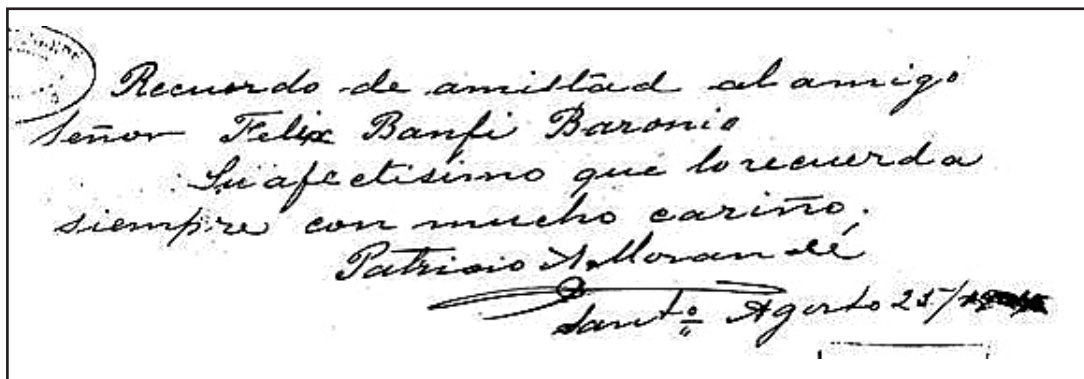 Recuerdo de amistad al amigo
Señor Felix Banfi Baronio
Su afectisimo que lo recuerda
siempre con mucho cariño.
Patricio A. Morandé
Santº Agosto 25/